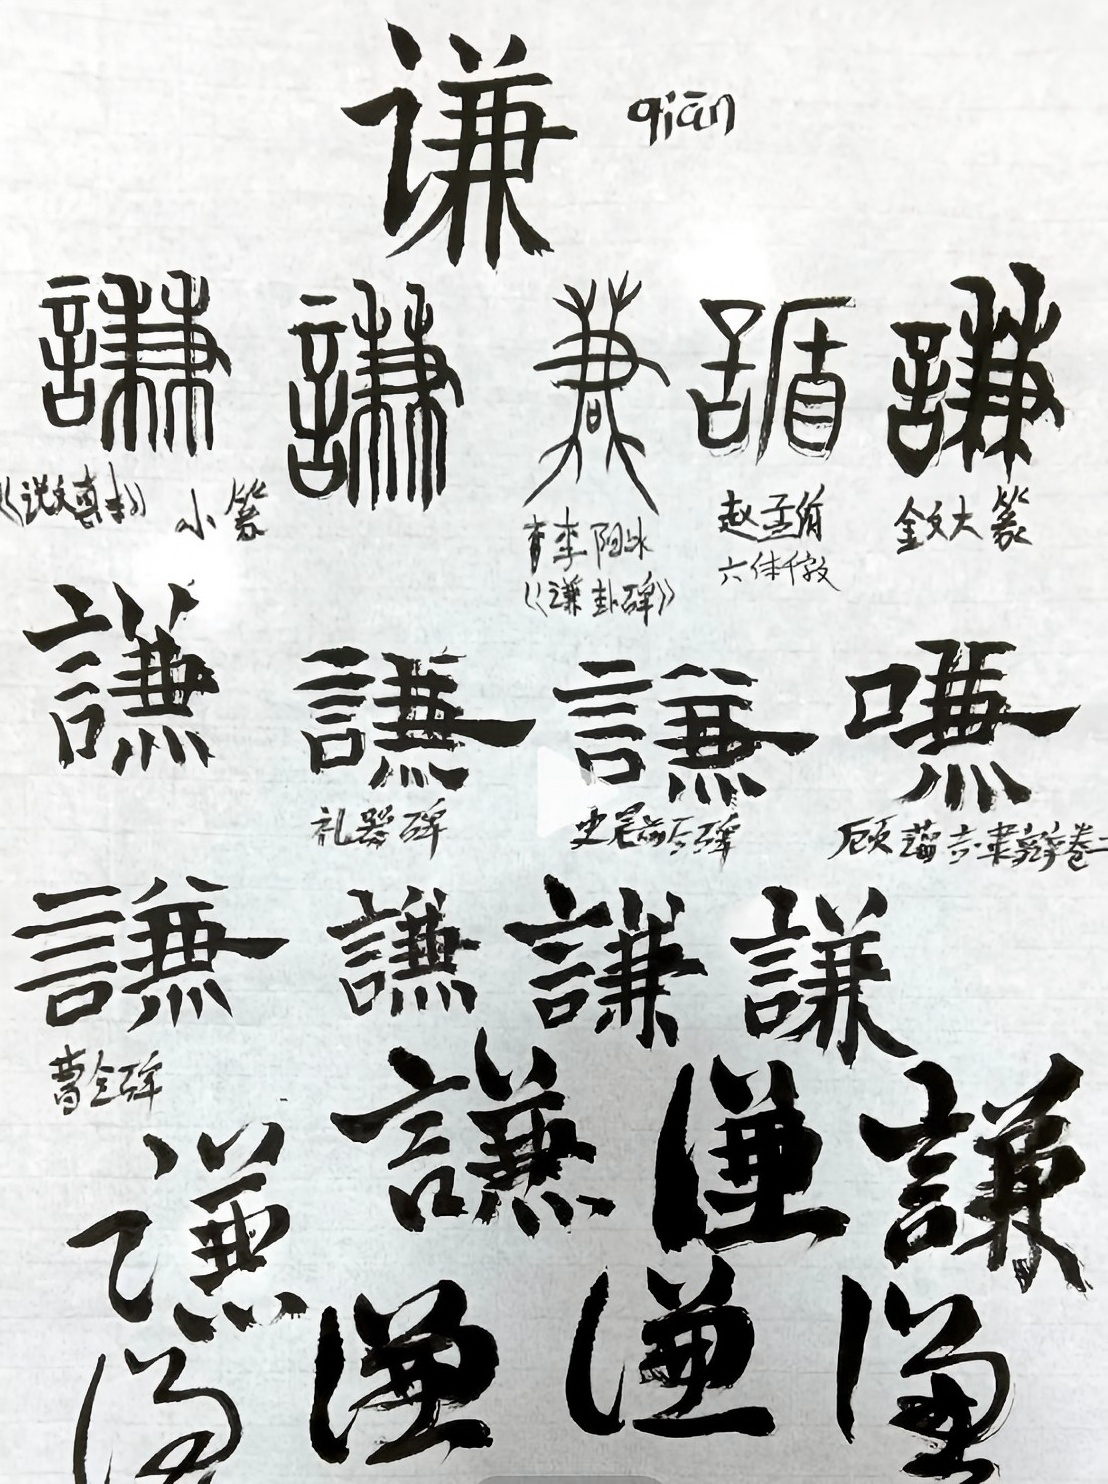 谦 qiān
謙 謙 謙 謙
《说文真本》 小篆 李阳冰 赵孟頫 金文大篆
《谦卦碑》 六体千文
謙 謙 謙 嗛
礼器碑 史晨后碑 顾蔼吉隶辨卷二
謙 謙 謙 謙
曹全碑
謙 謙 謙 謙
謙 謙 謙 謙